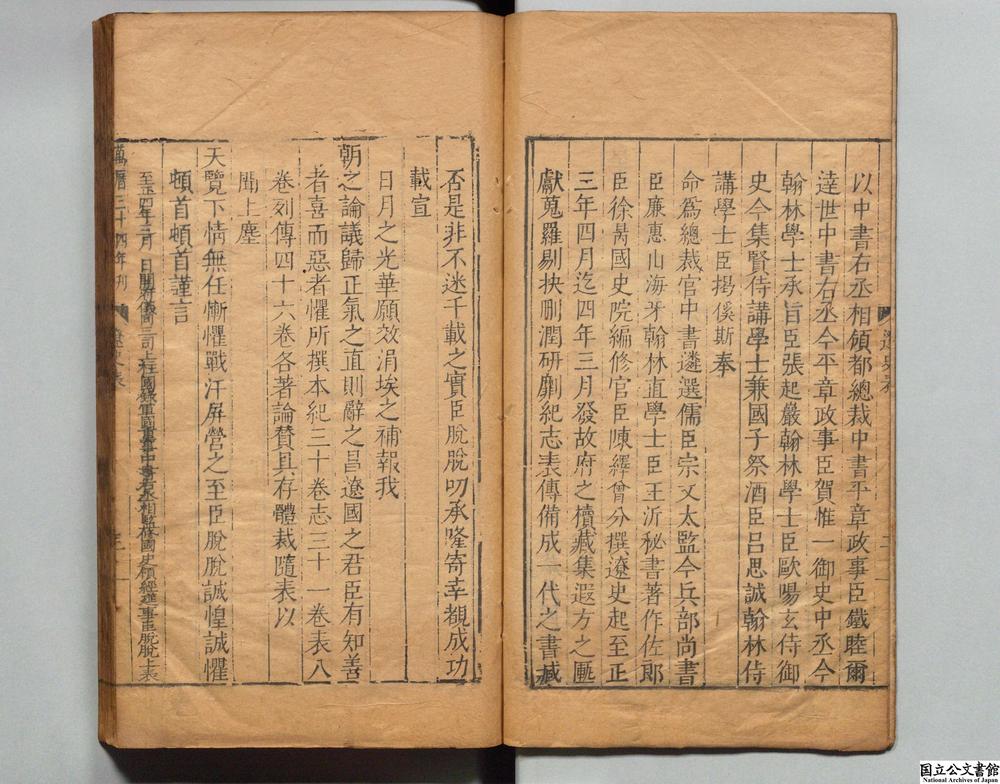 以中書右丞相領都總裁中書平章政事臣鐵睦爾
達世中書右丞今平章政事臣賀惟一御史中丞今
翰林學士承旨臣張起巖翰林學士臣歐陽玄侍御
史今集賢侍講學士兼國子祭酒臣呂思誠翰林侍
講學士臣揭傒斯奉
命爲總裁官中書遴選儒臣宗文太監今兵部尚書
臣廉惠山海牙翰林直學士臣王沂秘書著作佐郎
臣徐昺國史院編修官臣陳繹曾分撰遼史起至正
三年四月迄四年三月發故府之櫝藏集遐方之匭
獻蒐羅剔抉刪潤研劘紀志表傳備成一代之書臧
否是非不迷千載之實臣脫脫叨承隆寄幸覩成功
載宣
日月之光華願效涓埃之補報我
朝之論議歸正氣之直則辭之昌遼國之君臣有知善
者喜而惡者懼所撰本紀三十卷志三十一卷表八
卷列傳四十六卷各著論贊具存體裁隨表以
聞上塵
天覽下情無任慚懼戰汗屏營之至臣脫脫誠惶誠懼
頓首頓首謹言
至正四年三月 日開府儀同三司上柱國錄軍國重事中書右丞相監修國史領經筵事臣脫脫上表
萬曆三十四年刊
國立公文書館
National Archives of Japan